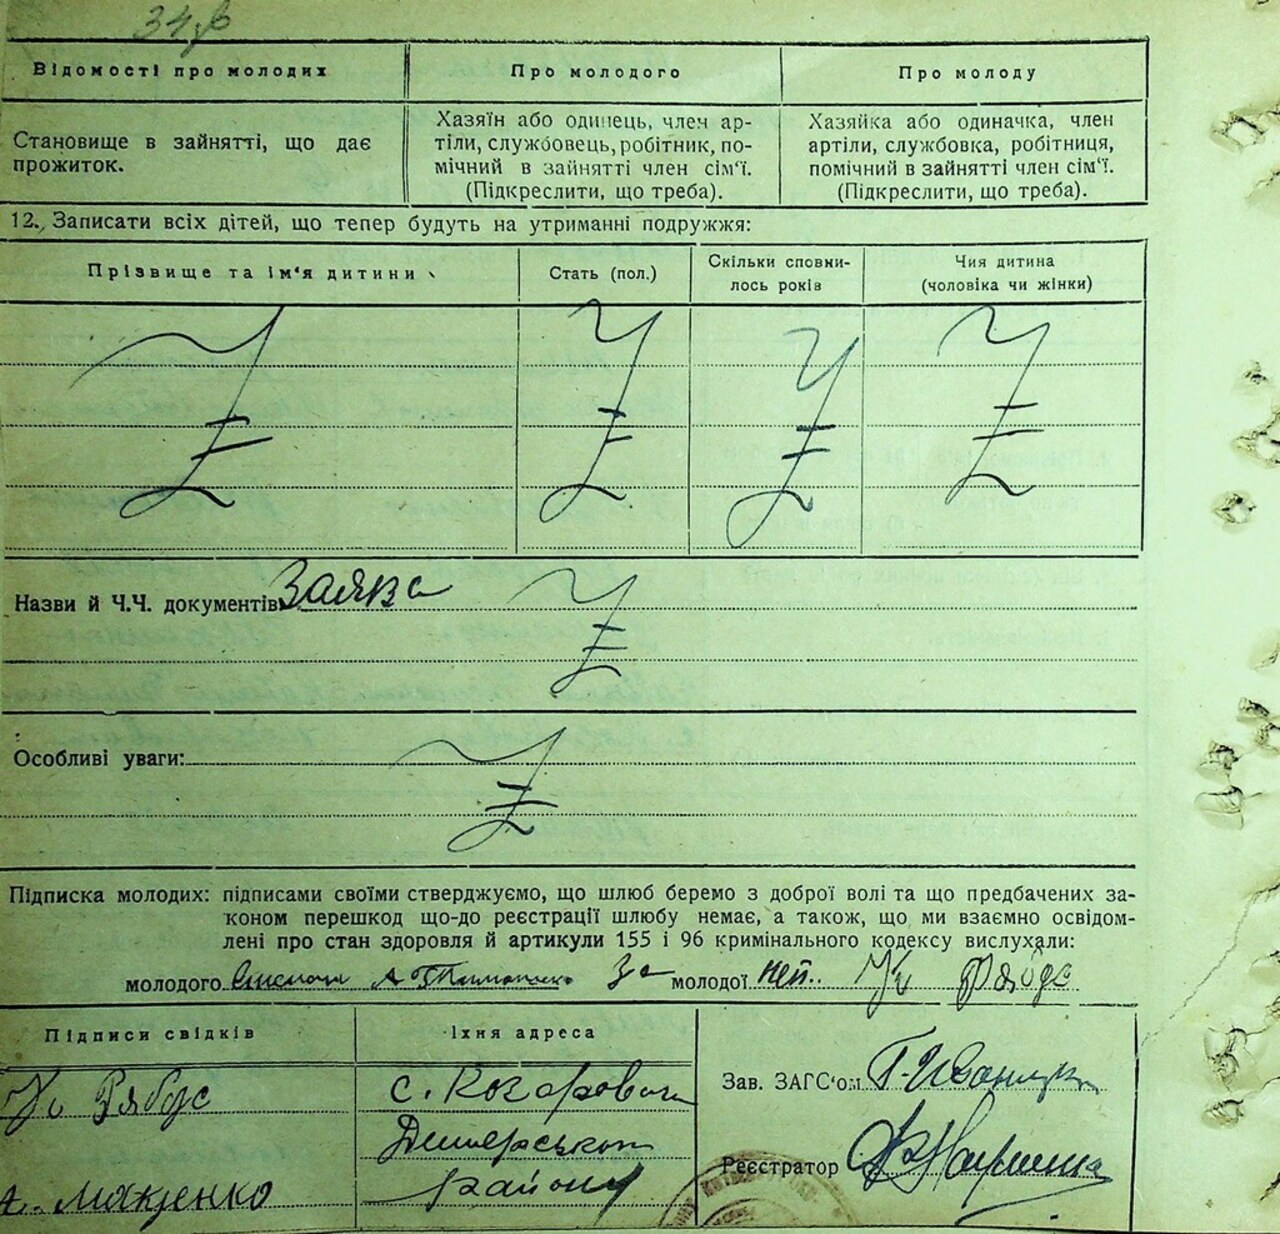 34зв
Відомості про молодих
Про молодого
Про молоду
Становище в зайнятті, що дає
прожиток.
Хазяїн або одинець, член ар-
тіли, службовець, робітник, по-
мічний в зайнятті член сім'ї.
(Підкреслити, що треба).
Хазяйка або одиначка, член
артіли, службовка, робітниця,
помічний в зайнятті член сім'ї.
(Підкреслити, що треба).
12. Записати всіх дітей, що тепер будуть на утриманні подружжя:
Прізвище та ім'я дитини
Стать (пол.)
Скільки сповни-
лось років
Чия дитина
(чоловіка чи жінки)
Назви й Ч.Ч. документів Заява
Особливі уваги:
Підписка молодих: підписами своїми стверджуємо, що шлюб беремо з доброї волі та що предбачених за-
коном перешкод що-до реєстрації шлюбу немає, а також, що ми взаємно освідом-
лені про стан здоровля й артикули 155 і 96 кримінального кодексу вислухали:
молодого За молодої неп. Рябде
Підписи свідків
Їхня адреса
Рябде
с. Козаровичі
Димерського
району
А. Мащенко
Зав. ЗАГС'ом
Реєстратор